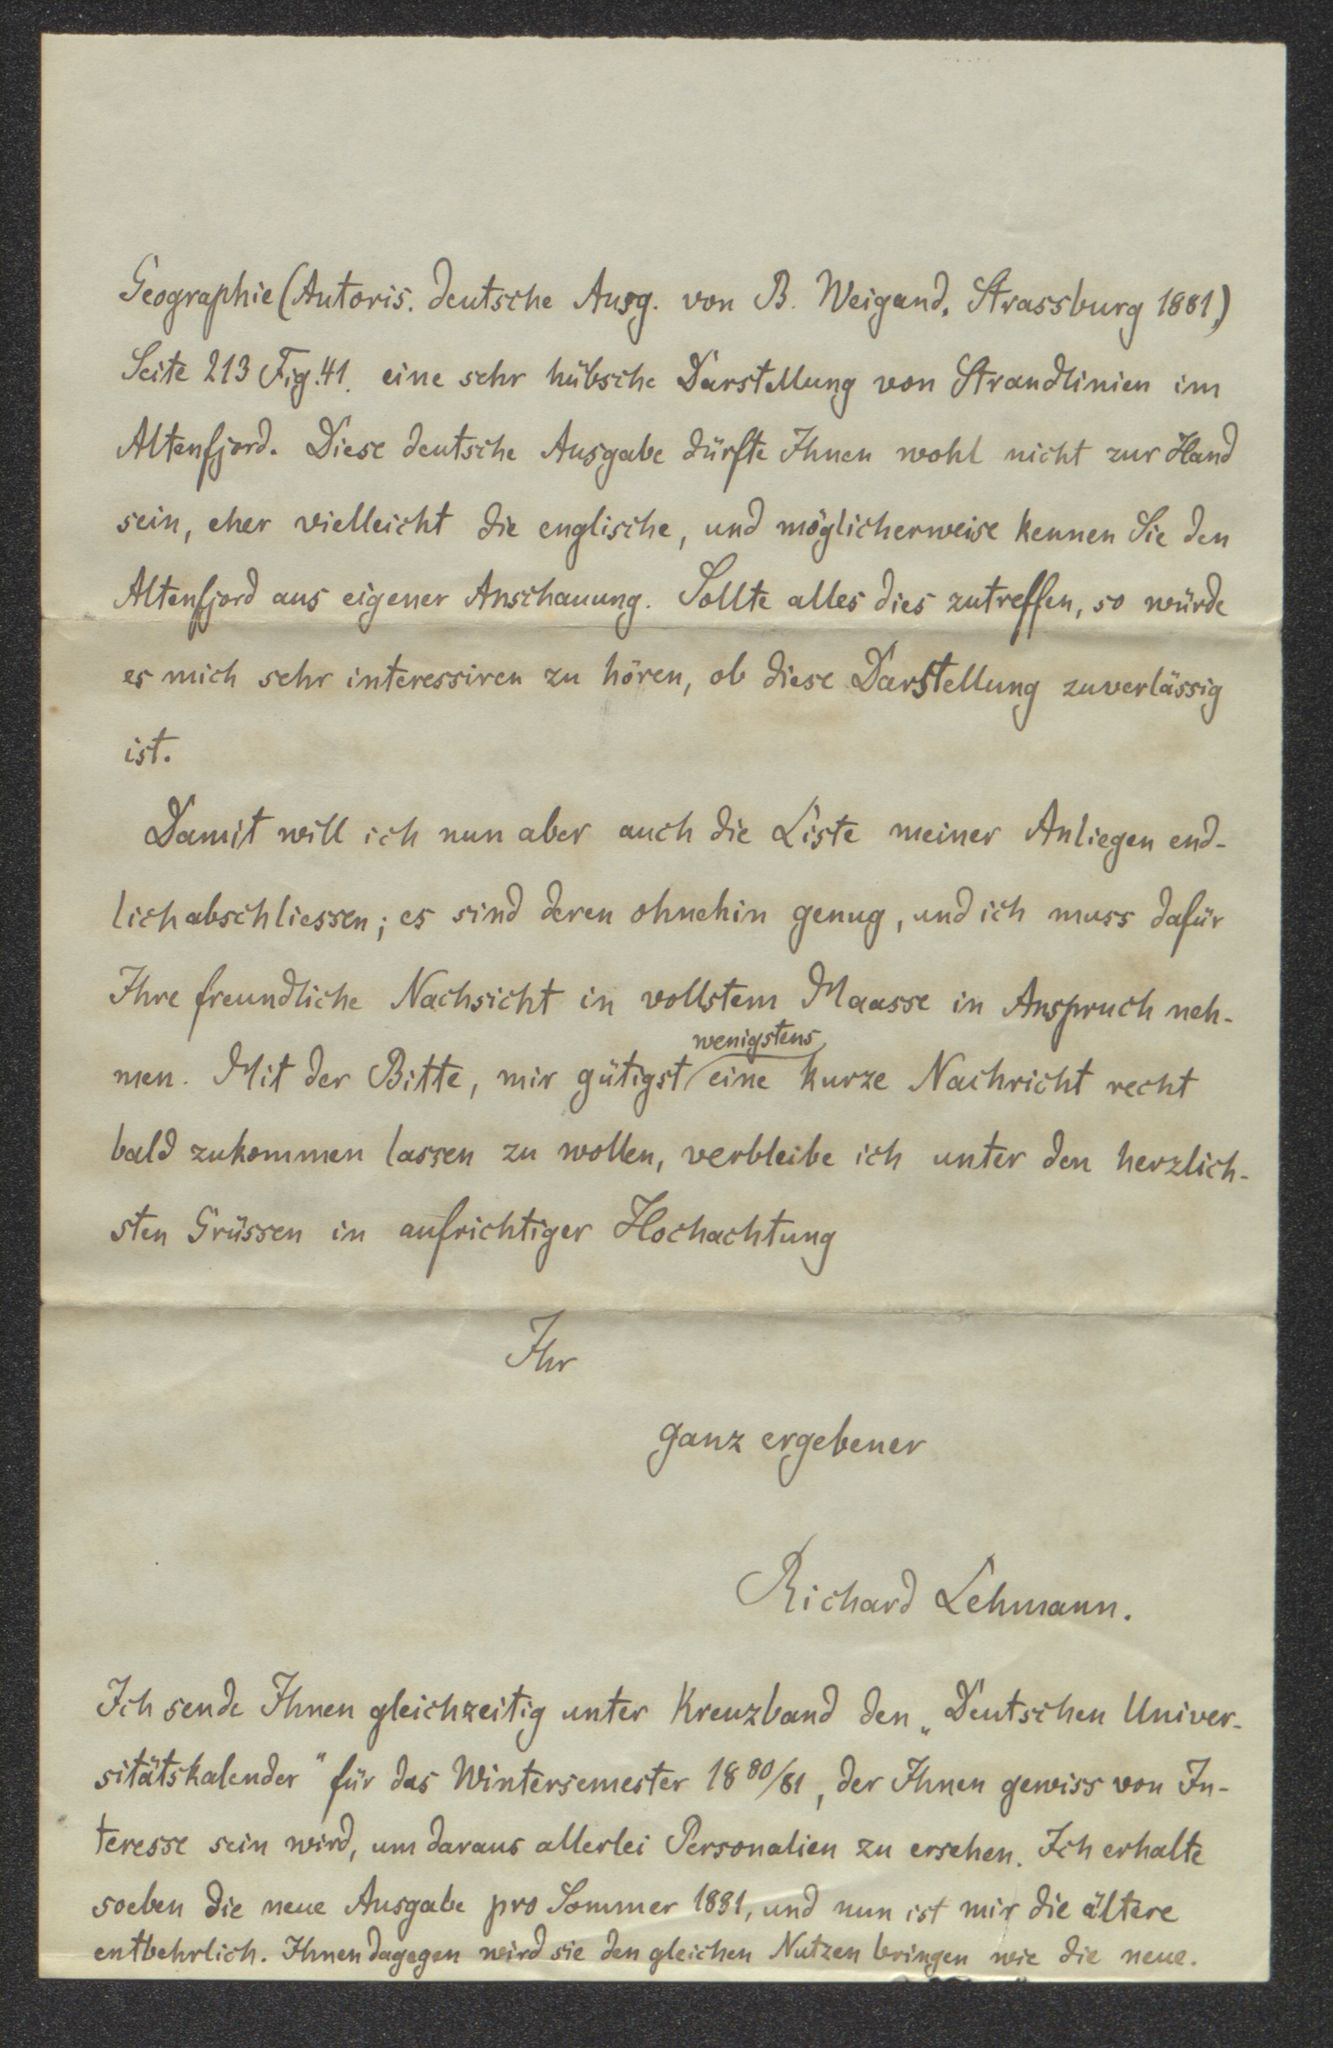 Geographie (Autoris. deutsche Ausg. von B. Weigand, Strassburg 1881,)
Seite 213 Fig. 41. eine sehr hübsche Darstellung von Strandlinien im
Altenfjord. Diese deutsche Ausgabe dürfte Ihnen wohl nicht zur Hand
sein, eher vielleicht die englische, und möglicherweise kennen Sie den
Altenfjord aus eigener Anschauung. Sollte alles dies zutreffen, so würde
es mich sehr interessiren zu hören, ob diese Darstellung zuverlässig
ist.
Damit will ich nun aber auch die Liste meiner Anliegen end-
lich abschliessen; es sind deren ohnehin genug, und ich muss dafür
Ihre freundliche Nachsicht in vollstem Maasse in Anspruch neh-
wenigstens
men. Mit der Bitte, mir gütigst eine kurze Nachricht recht
bald zukommen lassen zu wollen, verbleibe ich unter den herzlich-
sten Grüssen in aufrichtiger Hochachtung
Ihr
ganz ergebener
Richard Lehmann.
Ich sende Ihnen gleichzeitig unter Kreuzband den „Deutschen Univer-
sitätskalender" für das Wintersemester 1880/81, der Ihnen gewiss von In-
teresse sein wird, um daraus allerlei Personalien zu ersehen. Ich erhalte
soeben die neue Ausgabe pro Sommer 1881, und nun ist mir die ältere
entbehrlich. Ihnen dagegen wird sie den gleichen Nutzen bringen wie die neue.